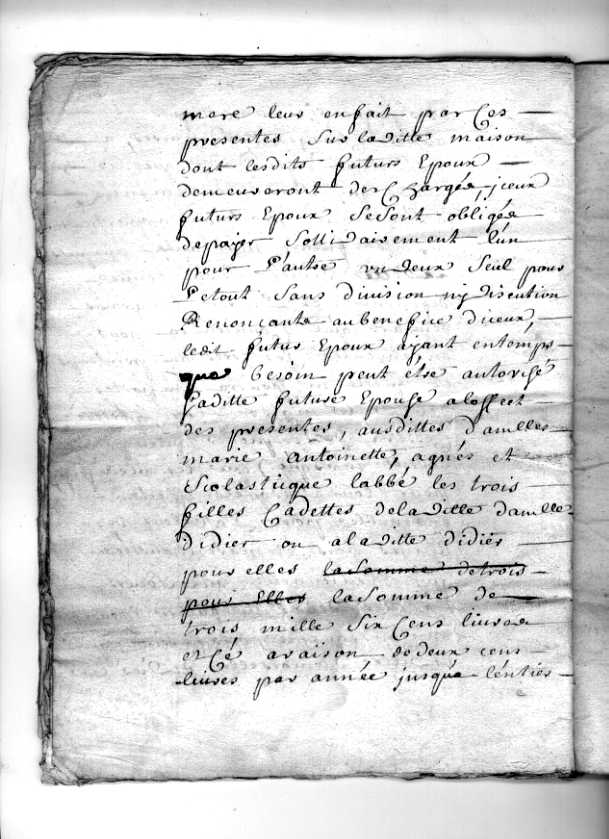 mere leur en fait par Ces
presentes sur laditte maison
dont lesdits futurs Epoux
demeureront deschargés, iceux
futurs Epoux se sont obligés
de payer sollidairement l'un
pour l'autre un deux seul pour
Le tout sans division ny discution
Renonçants au benefice diceux,
ledit futur Epoux ayant en temps
que besoin peut étre autorisé
saditte future Epouse a loffect
des presentes, ausdittes damlles
marie antoinette, agnés et
Scolasticque labbé les trois
filles Cadettes deladitte damlle
didier ou aladitte didiér
pour elles la Somme de trois
pour Elles la Somme de
trois mille Six Cens livres
et Cé a raison de deux cens
livres par année jusqua léntier